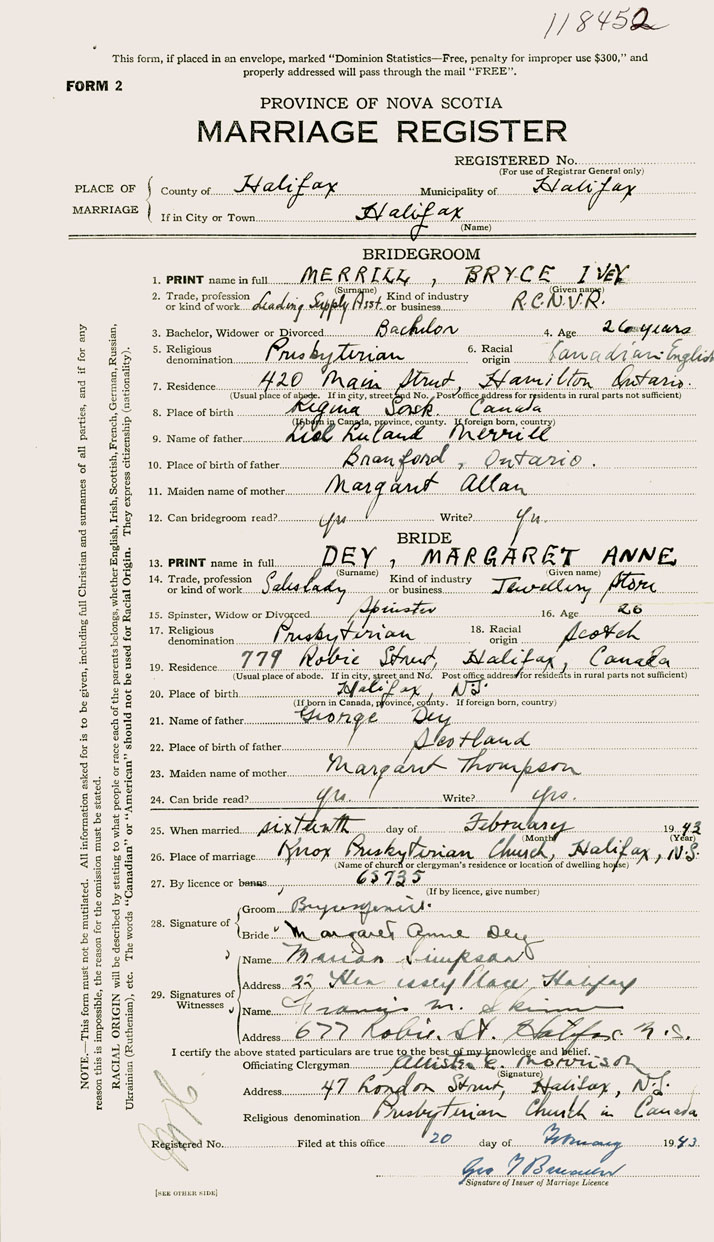 118452
This form, if placed in an envelope, marked "Dominion Statistics—Free, penalty for improper use $300," and
properly addressed will pass through the mail "FREE".
FORM 2
PROVINCE OF NOVA SCOTIA
MARRIAGE REGISTER
REGISTERED No.
(For use of Registrar General only)
PLACE OF MARRIAGE
County of Halifax Municipality of Halifax
If in City or Town Halifax
(Name)
BRIDEGROOM
1. PRINT name in full MERRILL, BRYCE IVEY
(Surname) (Given name)
2. Trade, profession or kind of work Leading Supply Asst. Kind of industry or business R.C.N.V.R.
3. Bachelor, Widower or Divorced Bachelor 4. Age 26 years
5. Religious denomination Presbyterian 6. Racial origin Canadian-English
7. Residence 420 Main Street, Hamilton Ontario.
(Usual place of abode. If in city, street and No. Post office address for residents in rural parts not sufficient)
8. Place of birth Regina Sask. Canada
(If born in Canada, province, county. If foreign born, country)
9. Name of father Leland Merrill
10. Place of birth of father Branford, Ontario.
11. Maiden name of mother Margaret Allan
12. Can bridegroom read? yes Write? yes.
BRIDE
13. PRINT name in full DEY, MARGARET ANNE
(Surname) (Given name)
14. Trade, profession or kind of work Saleslady Kind of industry or business Jewellery Store
15. Spinster, Widow or Divorced Spinster 16. Age 26
17. Religious denomination Presbyterian 18. Racial origin Scotch
19. Residence 779 Robie Street, Halifax, Canada
(Usual place of abode. If in city, street and No. Post office address for residents in rural parts not sufficient)
20. Place of birth Halifax, N.S.
(If born in Canada, province, county. If foreign born, country)
21. Name of father George Dey
22. Place of birth of father Scotland
23. Maiden name of mother Margaret Thompson
24. Can bride read? yes. Write? yes.
25. When married sixteenth day of February 1943
(Month) (Year)
26. Place of marriage Knox Presbyterian Church, Halifax, N.S.
(Name of church or clergyman's residence or location of dwelling house)
27. By licence or banns 65735
(If by licence, give number)
28. Signature of
Groom
Bride Margaret Anne Dey
29. Signatures of Witnesses
Name Marian Simpson
Address Place, Halifax
Name Francis M. Skinner
Address 677 Robie St. Halifax N.S.
I certify the above stated particulars are true to the best of my knowledge and belief.
Officiating Clergyman Morrison
(Signature)
Address 47 London Street, Halifax, N.S.
Religious denomination Presbyterian Church in Canada
Registered No. Filed at this office 20 day of February 1943
Geo
Signature of Issuer of Marriage Licence
[SEE OTHER SIDE]
NOTE.—This form must not be mutilated. All information asked for is to be given, including full Christian and surnames of all parties, and if for any
reason this is impossible, the reason for the omission must be stated.
RACIAL ORIGIN will be described by stating to what people or race each of the parents belongs, whether English, Irish, Scottish, French, German, Russian,
Ukrainian (Ruthenian), etc. The words "Canadian" or "American" should not be used for Racial Origin. They express citizenship (nationality).